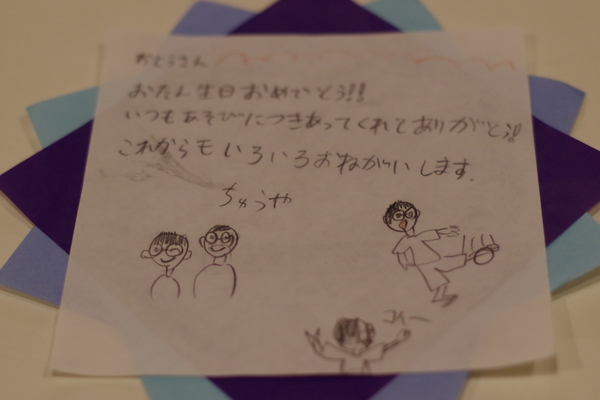 おとうさん
おたん生日おめでとう!!
いつもあそびにつきあってくれてありがとう!!
これからもいろいろおねがいします。
ちゅうや